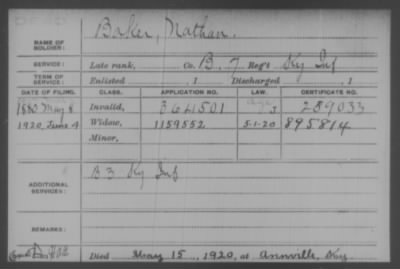 NAME OF SOLDIER: Baker, Nathan.
SERVICE: Late rank, Co. B. 7 Reg't Ky Inf
TERM OF SERVICE: Enlisted , 1 Discharged , 1
DATE OF FILING. CLASS. APPLICATION NO. LAW. CERTIFICATE NO.
1880 May 8 Invalid, 364501 289033
1920, June 4 Widow, 1159552 5-1-20 895814
Minor,
ADDITIONAL SERVICES: B 3 Ky Inf
REMARKS:
Died May 15, 1920, at Annville, Ky.